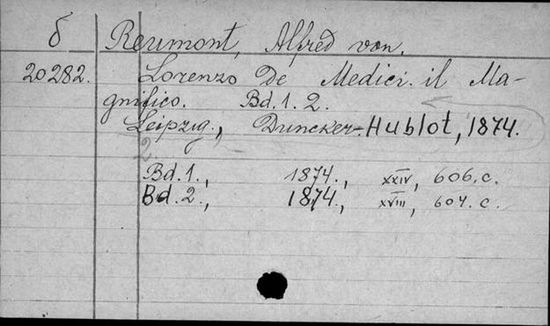 б Reumont, Alfred von.
20282. Lorenzo De Medici. il Ma-
gnifico. Bd. 1. 2.
Leipzig., Duncker-Hublot, 1874.
2
Bd. 1., 1874., XXIV, 606. c.
Bd. 2., 1874., XVIII, 604. c.